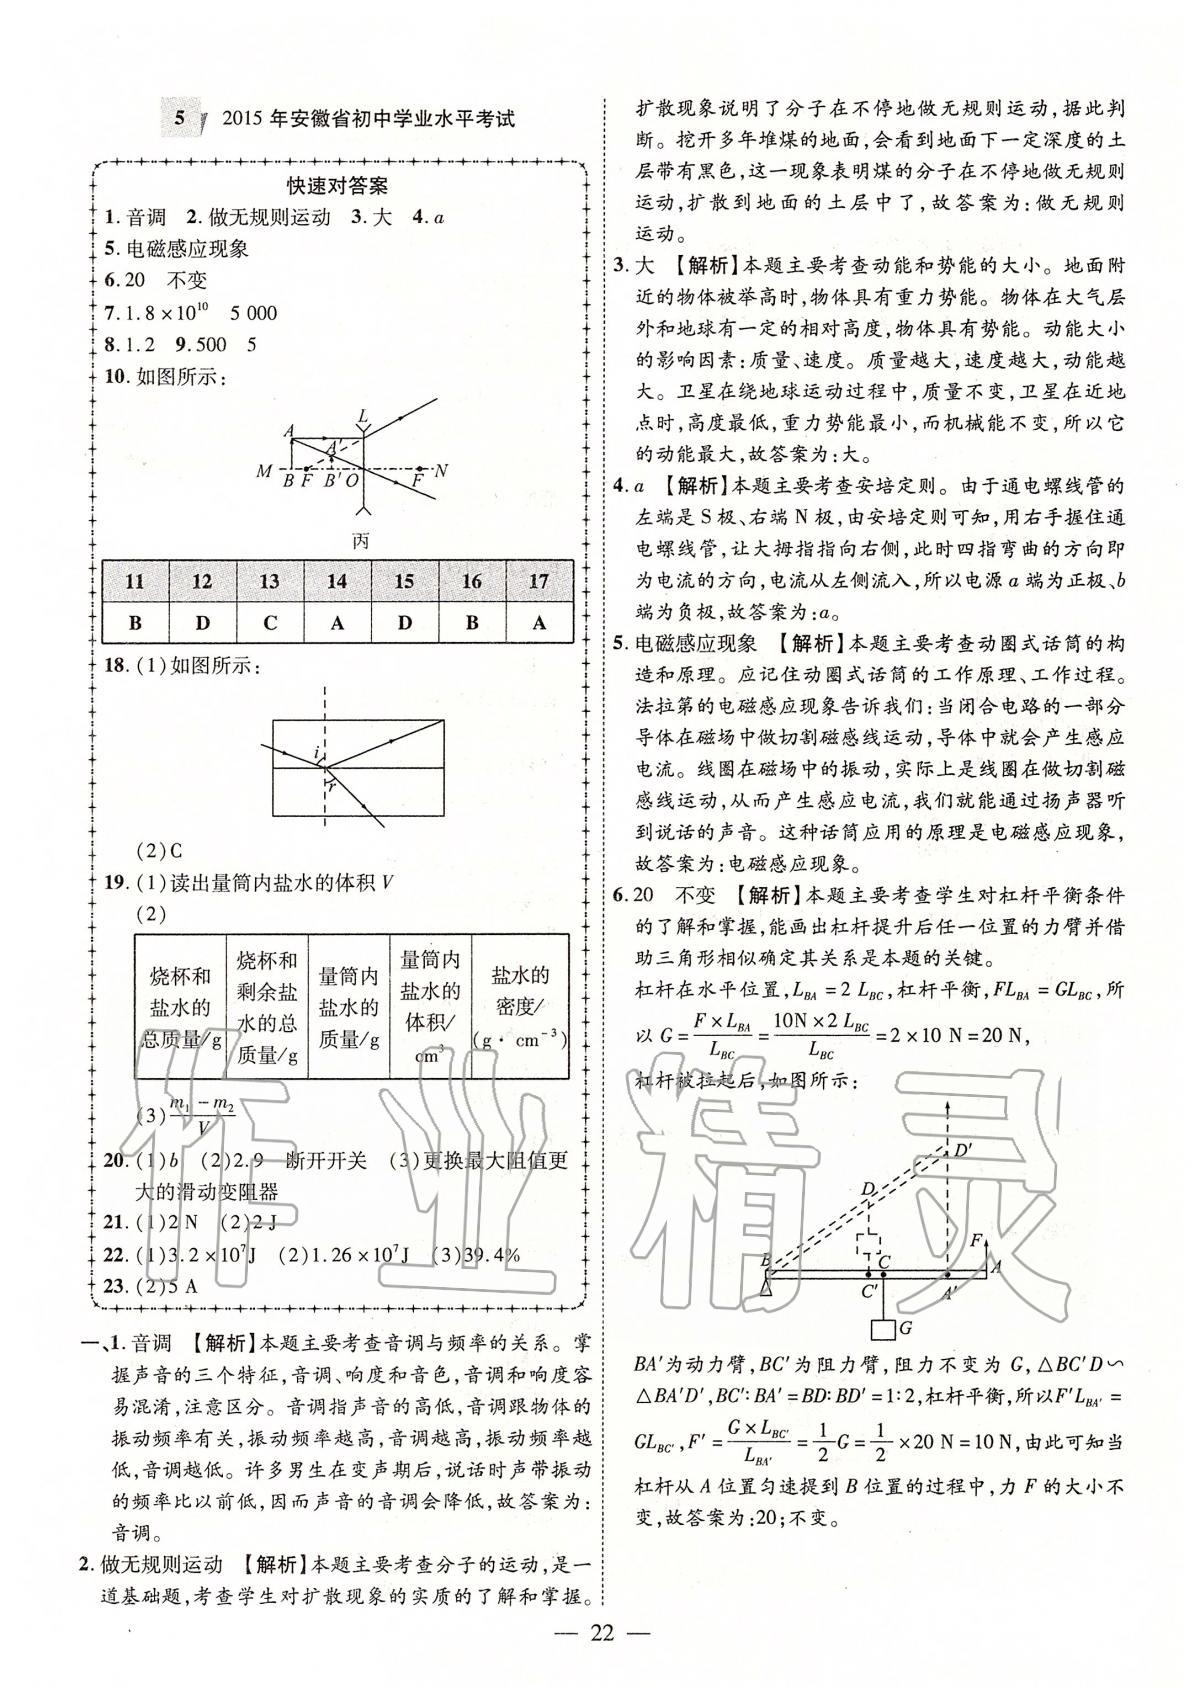 5 2015 年安徽省初中学业水平考试
快速对答案
1. 音调 2. 做无规则运动 3. 大 4. a
5. 电磁感应现象
6. 20 不变
7. 1.8×10¹⁰ 5 000
8. 1.2 9. 500 5
10. 如图所示:
L
A
A′
M
B F B′ O F N
丙
11 12 13 14 15 16 17
B D C A D B A
18. (1)如图所示:
i
r
(2)C
19. (1)读出量筒内盐水的体积 V
(2)
烧杯和盐水的总质量/g 烧杯和剩余盐水的总质量/g 量筒内盐水的质量/g 量筒内盐水的体积/cm³ 盐水的密度/(g·cm⁻³)
(3)(m₁－m₂)/V
20. (1)b (2)2.9 断开开关 (3)更换最大阻值更
大的滑动变阻器
21. (1)2 N (2)2 J
22. (1)3.2×10⁷J (2)1.26×10⁷J (3)39.4%
23. (2)5 A
一、1. 音调 【解析】本题主要考查音调与频率的关系。掌
握声音的三个特征,音调、响度和音色,音调和响度容
易混淆,注意区分。音调指声音的高低,音调跟物体的
振动频率有关,振动频率越高,音调越高,振动频率越
低,音调越低。许多男生在变声期后,说话时声带振动
的频率比以前低,因而声音的音调会降低,故答案为:
音调。
2. 做无规则运动 【解析】本题主要考查分子的运动,是一
道基础题,考查学生对扩散现象的实质的了解和掌握。
扩散现象说明了分子在不停地做无规则运动,据此判
断。挖开多年堆煤的地面,会看到地面下一定深度的土
层带有黑色,这一现象表明煤的分子在不停地做无规则
运动,扩散到地面的土层中了,故答案为:做无规则
运动。
3. 大 【解析】本题主要考查动能和势能的大小。地面附
近的物体被举高时,物体具有重力势能。物体在大气层
外和地球有一定的相对高度,物体具有势能。动能大小
的影响因素:质量、速度。质量越大,速度越大,动能越
大。卫星在绕地球运动过程中,质量不变,卫星在近地
点时,高度最低,重力势能最小,而机械能不变,所以它
的动能最大,故答案为:大。
4. a 【解析】本题主要考查安培定则。由于通电螺线管的
左端是 S 极、右端 N 极,由安培定则可知,用右手握住通
电螺线管,让大拇指指向右侧,此时四指弯曲的方向即
为电流的方向,电流从左侧流入,所以电源 a 端为正极、b
端为负极,故答案为:a。
5. 电磁感应现象 【解析】本题主要考查动圈式话筒的构
造和原理。应记住动圈式话筒的工作原理、工作过程。
法拉第的电磁感应现象告诉我们:当闭合电路的一部分
导体在磁场中做切割磁感线运动,导体中就会产生感应
电流。线圈在磁场中的振动,实际上是线圈在做切割磁
感线运动,从而产生感应电流,我们就能通过扬声器听
到说话的声音。这种话筒应用的原理是电磁感应现象,
故答案为:电磁感应现象。
6. 20 不变 【解析】本题主要考查学生对杠杆平衡条件
的了解和掌握,能画出杠杆提升后任一位置的力臂并借
助三角形相似确定其关系是本题的关键。
杠杆在水平位置,L_BA＝2 L_BC,杠杆平衡,FL_BA＝GL_BC,所
以 G＝(F×L_BA)/L_BC＝(10N×2 L_BC)/L_BC＝2×10 N＝20 N,
杠杆被拉起后,如图所示:
D′
D
F
B C A
C′ A′
G
BA′为动力臂,BC′为阻力臂,阻力不变为 G,△BC′D∽
△BA′D′,BC′∶BA′＝BD∶BD′＝1∶2,杠杆平衡,所以F′L_BA′＝
GL_BC′,F′＝(G×L_BC′)/L_BA′＝1/2G＝1/2×20 N＝10 N,由此可知当
杠杆从 A 位置匀速提到 B 位置的过程中,力 F 的大小不
变,故答案为:20;不变。
— 22 —
作业精灵